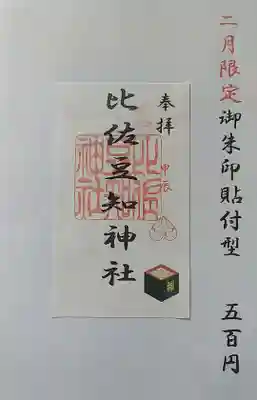 二月限定御朱印貼付型 五百円
奉拝
甲辰
比佐豆知神社
比佐豆知神社
福